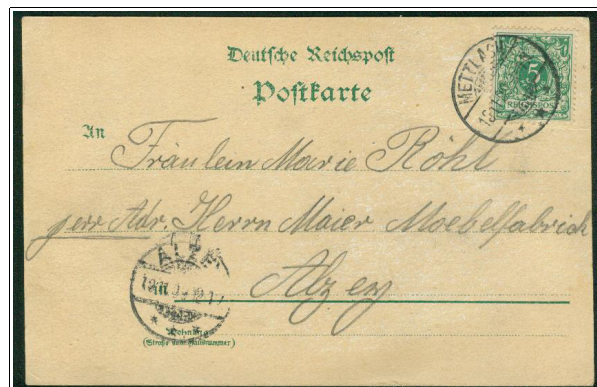 Deutsche Reichspost
Postkarte
METTLACH
5
REICHSPOST
An
Fräulein Marie Röhl
per Adr. Herrn Maier Moebelfabrick
Alzey
ALZEY
Wohnung
(Straße und Hausnummer)